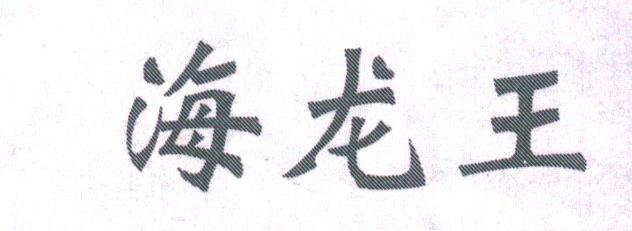 海龙王